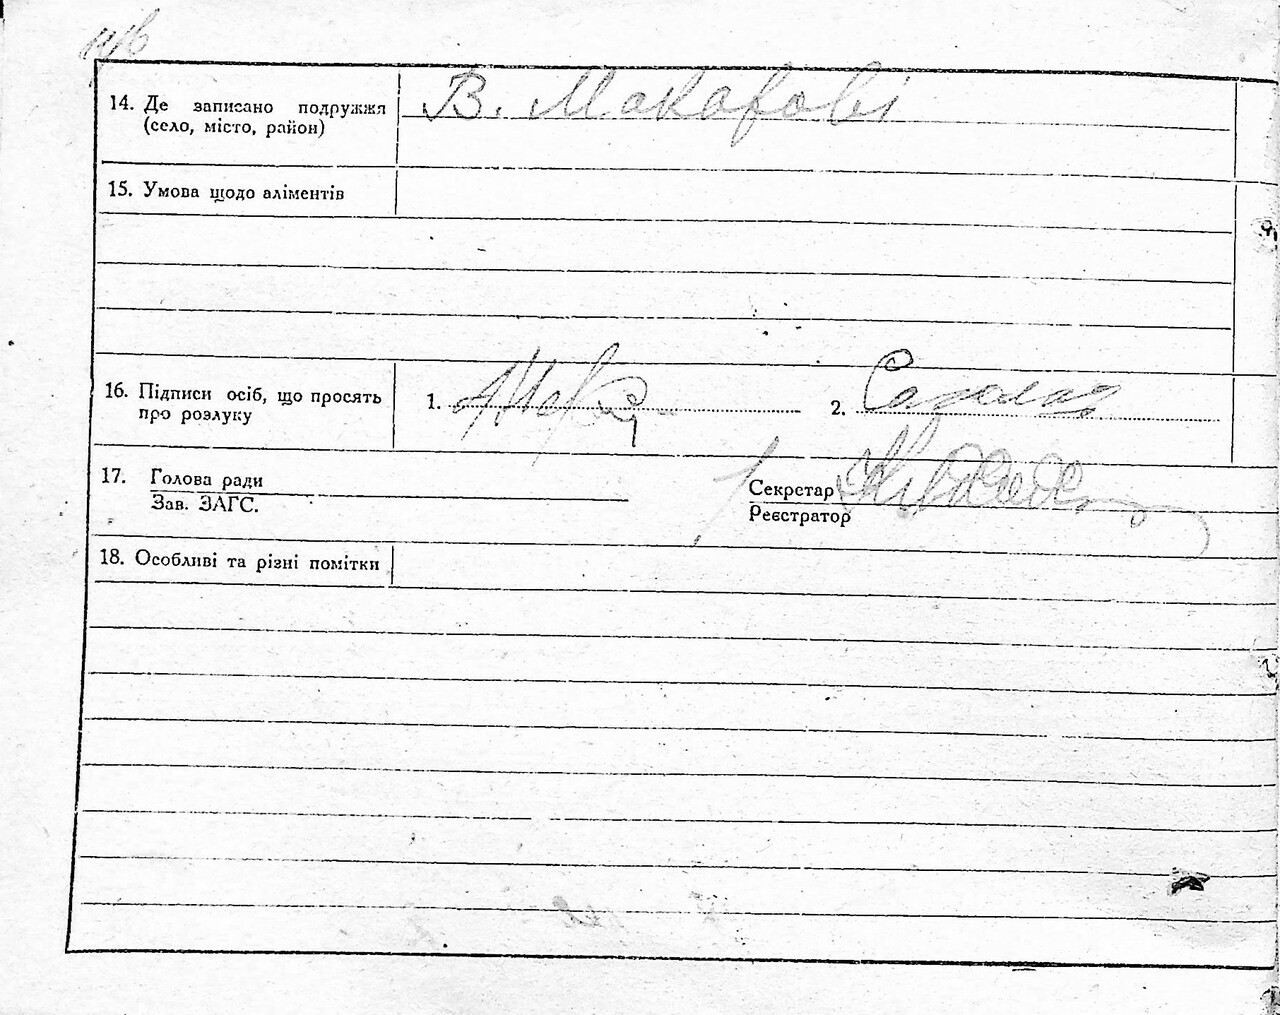 14. Де записано подружжя
(село, місто, район)
В. Макарові
15. Умова щодо аліментів
16. Підписи осіб, що просять
про розлуку
1.
2.
17. Голова ради
Зав. ЗАГС.
Секретар
Реєстратор
18. Особливі та різні помітки